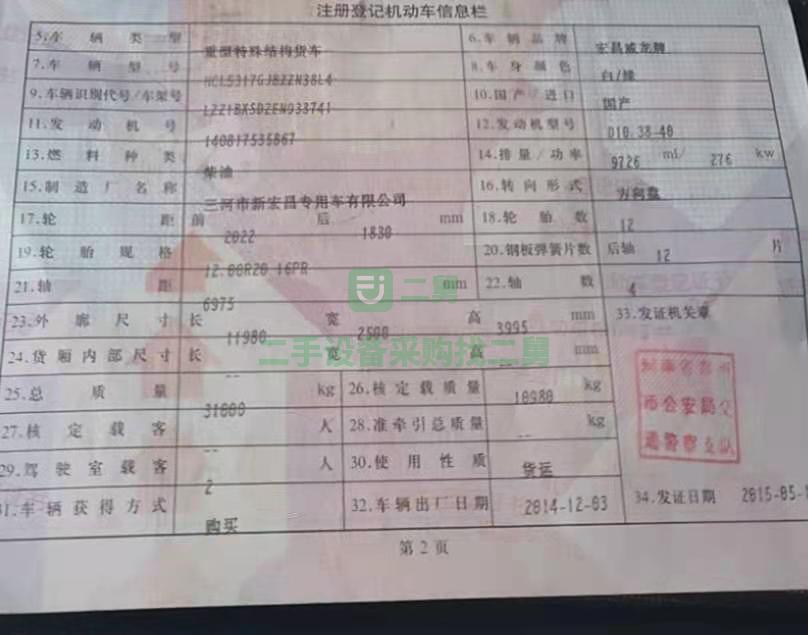 注册登记机动车信息栏
5.车辆类型 重型特殊结构货车 6.车辆品牌 宏昌威龙牌
7.车辆型号 HCL5317GJBZZN38L4 8.车身颜色 白/绿
9.车辆识别代号/车架号 LZZ1BXSD2EN938741 10.国产/进口 国产
11.发动机号 140817535867 12.发动机型号 D10.38-40
13.燃料种类 柴油 14.排量/功率 9726 ml/ 276 kw
15.制造厂名称 三河市新宏昌专用车有限公司 16.转向形式 方向盘
17.轮距 前 2022 后 1830 mm 18.轮胎数 12
19.轮胎规格 12.00R20 16PR 20.钢板弹簧片数 后轴 12 片
21.轴距 6975 mm 22.轴数 4
二舅
23.外廓尺寸 长 11980 宽 2500 高 3995 mm 33.发证机关章
24.货厢内部尺寸 长 -- 宽 -- 高 -- mm
二手设备采购找二舅
25.总质量 31000 kg 26.核定载质量 18980 kg
市公安局交
通警察支队
27.核定载客 -- 人 28.准牵引总质量 -- kg
29.驾驶室载客 2 人 30.使用性质 货运
31.车辆获得方式 购买 32.车辆出厂日期 2014-12-03 34.发证日期 2015-05-
第2页